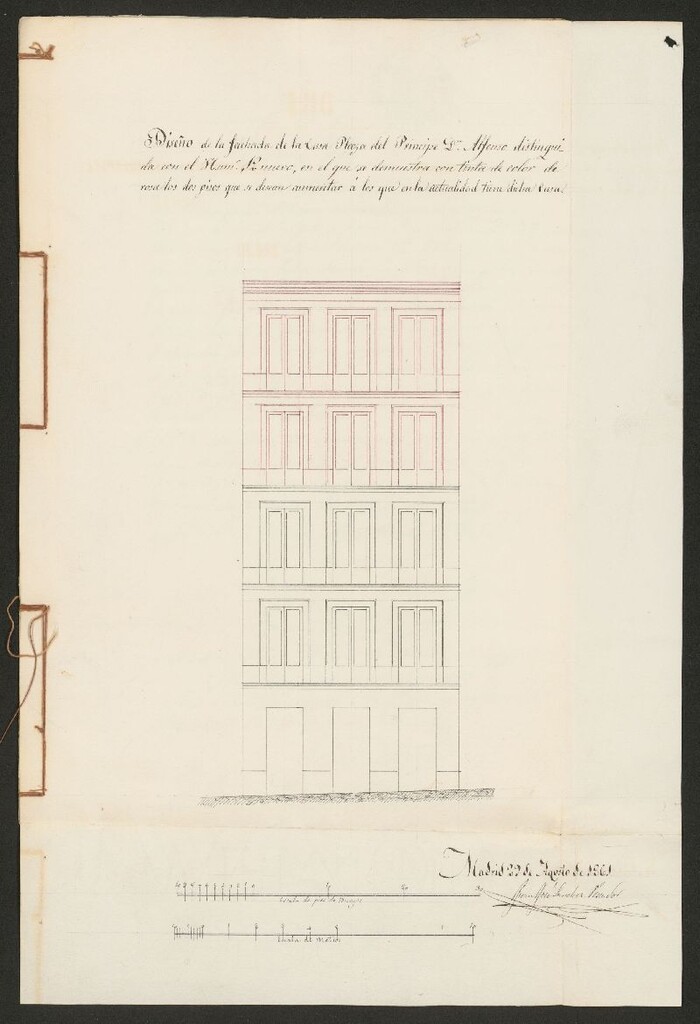 Diseño de la fachada de la Casa Plaza del Principe Dn. Alfonso distingui-
da con el Num.º 1º nuevo, en el que se demuestra con tinta de color de
rosa los dos pisos que se desean aumentar á los que en la actualidad tiene dicha Casa.
Madrid 22 de Agosto de 1861
Juan José
Escala de pies de Burgos
Escala de Metros